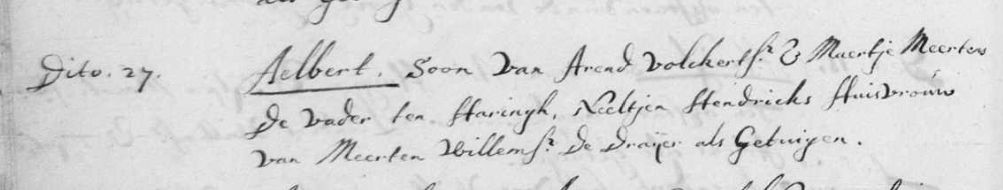 Dito. 27. Aelbert. Soon van Arend Volckertsz & Maertje Meertens
De vader ten Haringh, Neeltjen Hendricks Huisvrouw
van Meerten Willemsz De Draijer als Getuigen.